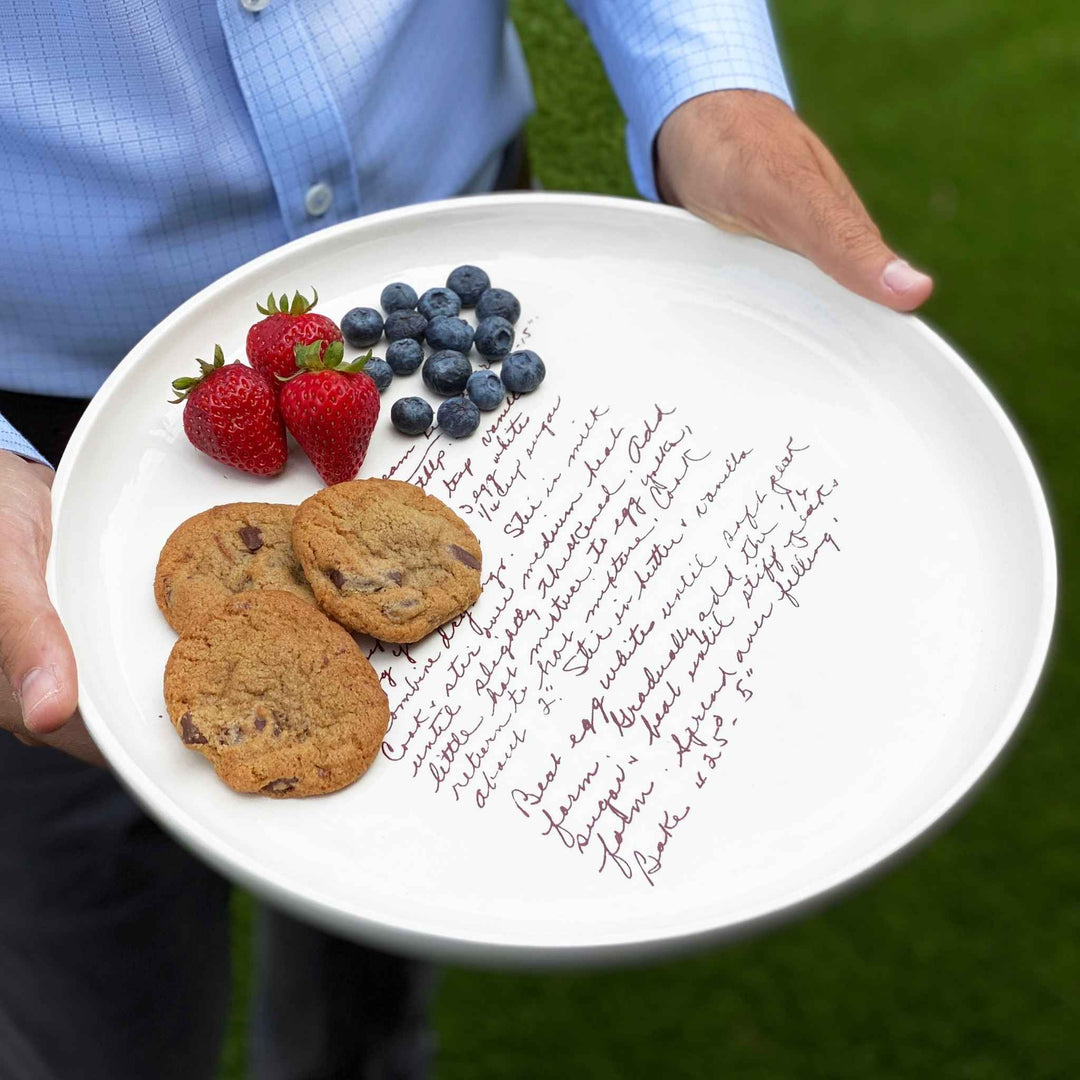 5-
vanilla
tbsp.
tsp white
egg
1/2 cup sugar
Combine dry Stir in milk
Cook & stir over medium heat
until slightly thickened. Add
little hot mixture to egg yolks,
return to hot mixture. Cook
about 2". Stir in butter & vanilla
Beat egg whites until soft peak
form. Gradually add the
sugar & beat until stiff peaks
form. Spread over filling,
Bake 425° - 5"